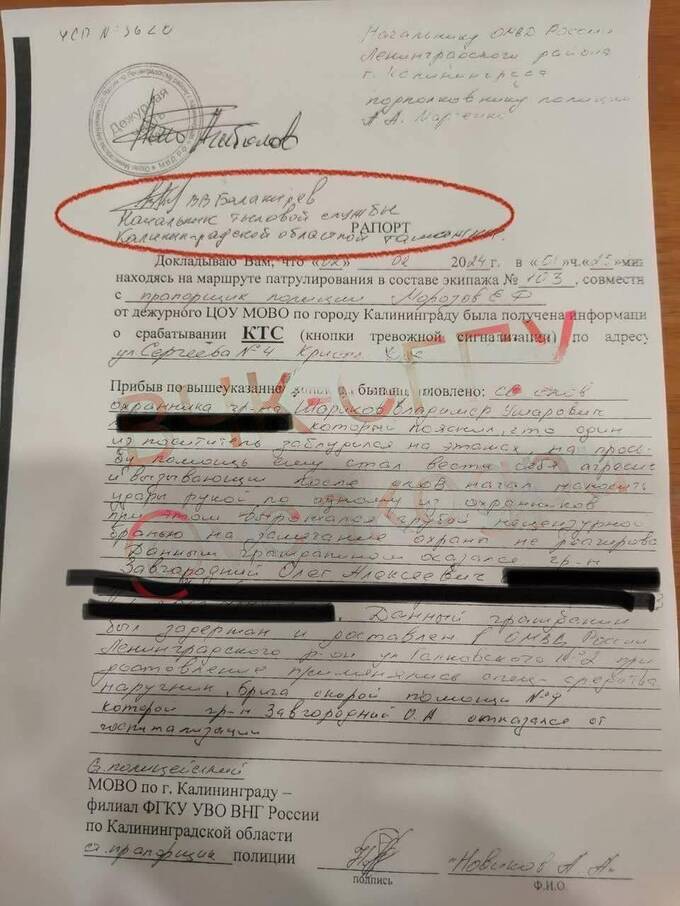 УСП № 3620
Начальнику ОМВД России
Ленинградского района
г. Калининграда
подполковнику полиции
А.А.
Дежурная часть
В В Балакирев
Начальник тыловой службы
Калининградской областной таможни
РАПОРТ
Докладываю Вам, что «02» 02 2024г. в «01»ч.«25»мин
находясь на маршруте патрулирования в составе экипажа № 103, совместн
с прапорщик полиции Морозов Е Ф
от дежурного ЦОУ МОВО по городу Калининграду была получена информаци
о срабатывании КТС (кнопки тревожной сигнализации) по адресу
ул Сергеева №4 Кристл
Прибыв по вышеуказанно было установлено: со слов
охранника гр-на Шариков Владимер Умарович
который пояснил, что один
из посетитель заблудился на этажах на прось-
бу помощь ему стал вести себя агресив
и вызывающий после чего начал наносить
удары рукой по одному из охранников
при этом выражался грубой нецензурной
бранью на замечание охраны не реагирова
Данным гражданином оказался гр-н
Завгородний Олег Алексеевич
Данный гражданин
был задержан и доставлен в ОМВД России
Ленинградского р-он ул №2 при
доставление применялись спец-средства
наручник, брига скорой помощи №9
которой гр-н Завгородний О.А отказался от
госпитализации
полицейский
МОВО по г. Калининграду –
филиал ФГКУ УВО ВНГ России
по Калининградской области
ст. прапорщик полиции
Новиков А. А.
подпись
Ф.И.О.